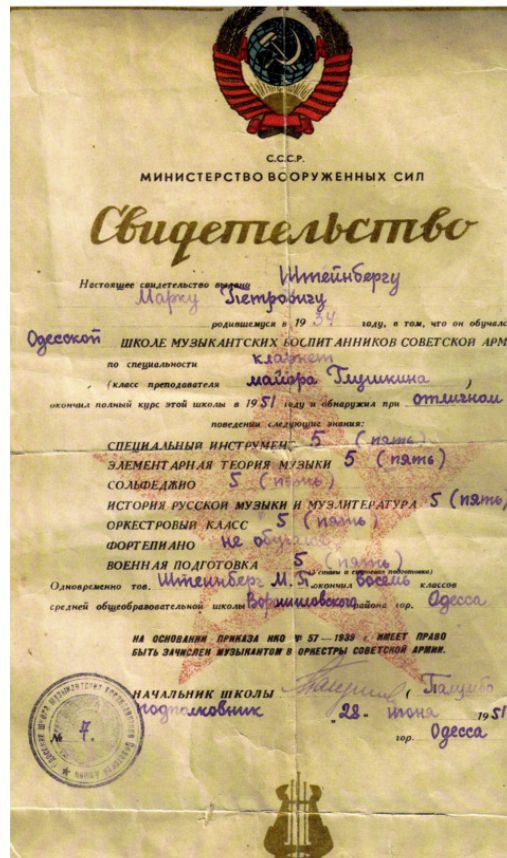 С.С.С.Р.
МИНИСТЕРСТВО ВООРУЖЕННЫХ СИЛ
Свидетельство
Настоящее свидетельство выдано Штейнбергу
Марку Петровичу
родившемуся в 1934 году, в том, что он обучался
Одесской ШКОЛЕ МУЗЫКАНТСКИХ ВОСПИТАННИКОВ СОВЕТСКОЙ АРМ
по специальности кларнет
(класс преподавателя майора Глушкина )
окончил полный курс этой школы в 1951 году и обнаружил при отличном
поведении следующие знания:
СПЕЦИАЛЬНЫЙ ИНСТРУМЕНТ 5 (пять)
ЭЛЕМЕНТАРНАЯ ТЕОРИЯ МУЗЫКИ 5 (пять)
СОЛЬФЕДЖИО 5 (пять)
ИСТОРИЯ РУССКОЙ МУЗЫКИ И МУЗЛИТЕРАТУРА 5 (пять)
ОРКЕСТРОВЫЙ КЛАСС 5 (пять)
ФОРТЕПИАНО не обучался
ВОЕННАЯ ПОДГОТОВКА 5 (пять)
(Уставы и строевая подготовка)
Одновременно тов. Штейнберг М.П. окончил восемь классов
средней общеобразовательной школы района гор. Одесса
НА ОСНОВАНИИ ПРИКАЗА НКО № 57—1939 г. ИМЕЕТ ПРАВО
БЫТЬ ЗАЧИСЛЕН МУЗЫКАНТОМ В ОРКЕСТРЫ СОВЕТСКОЙ АРМИИ.
НАЧАЛЬНИК ШКОЛЫ (
подполковник „28" июня 1951
№ 7. гор. Одесса